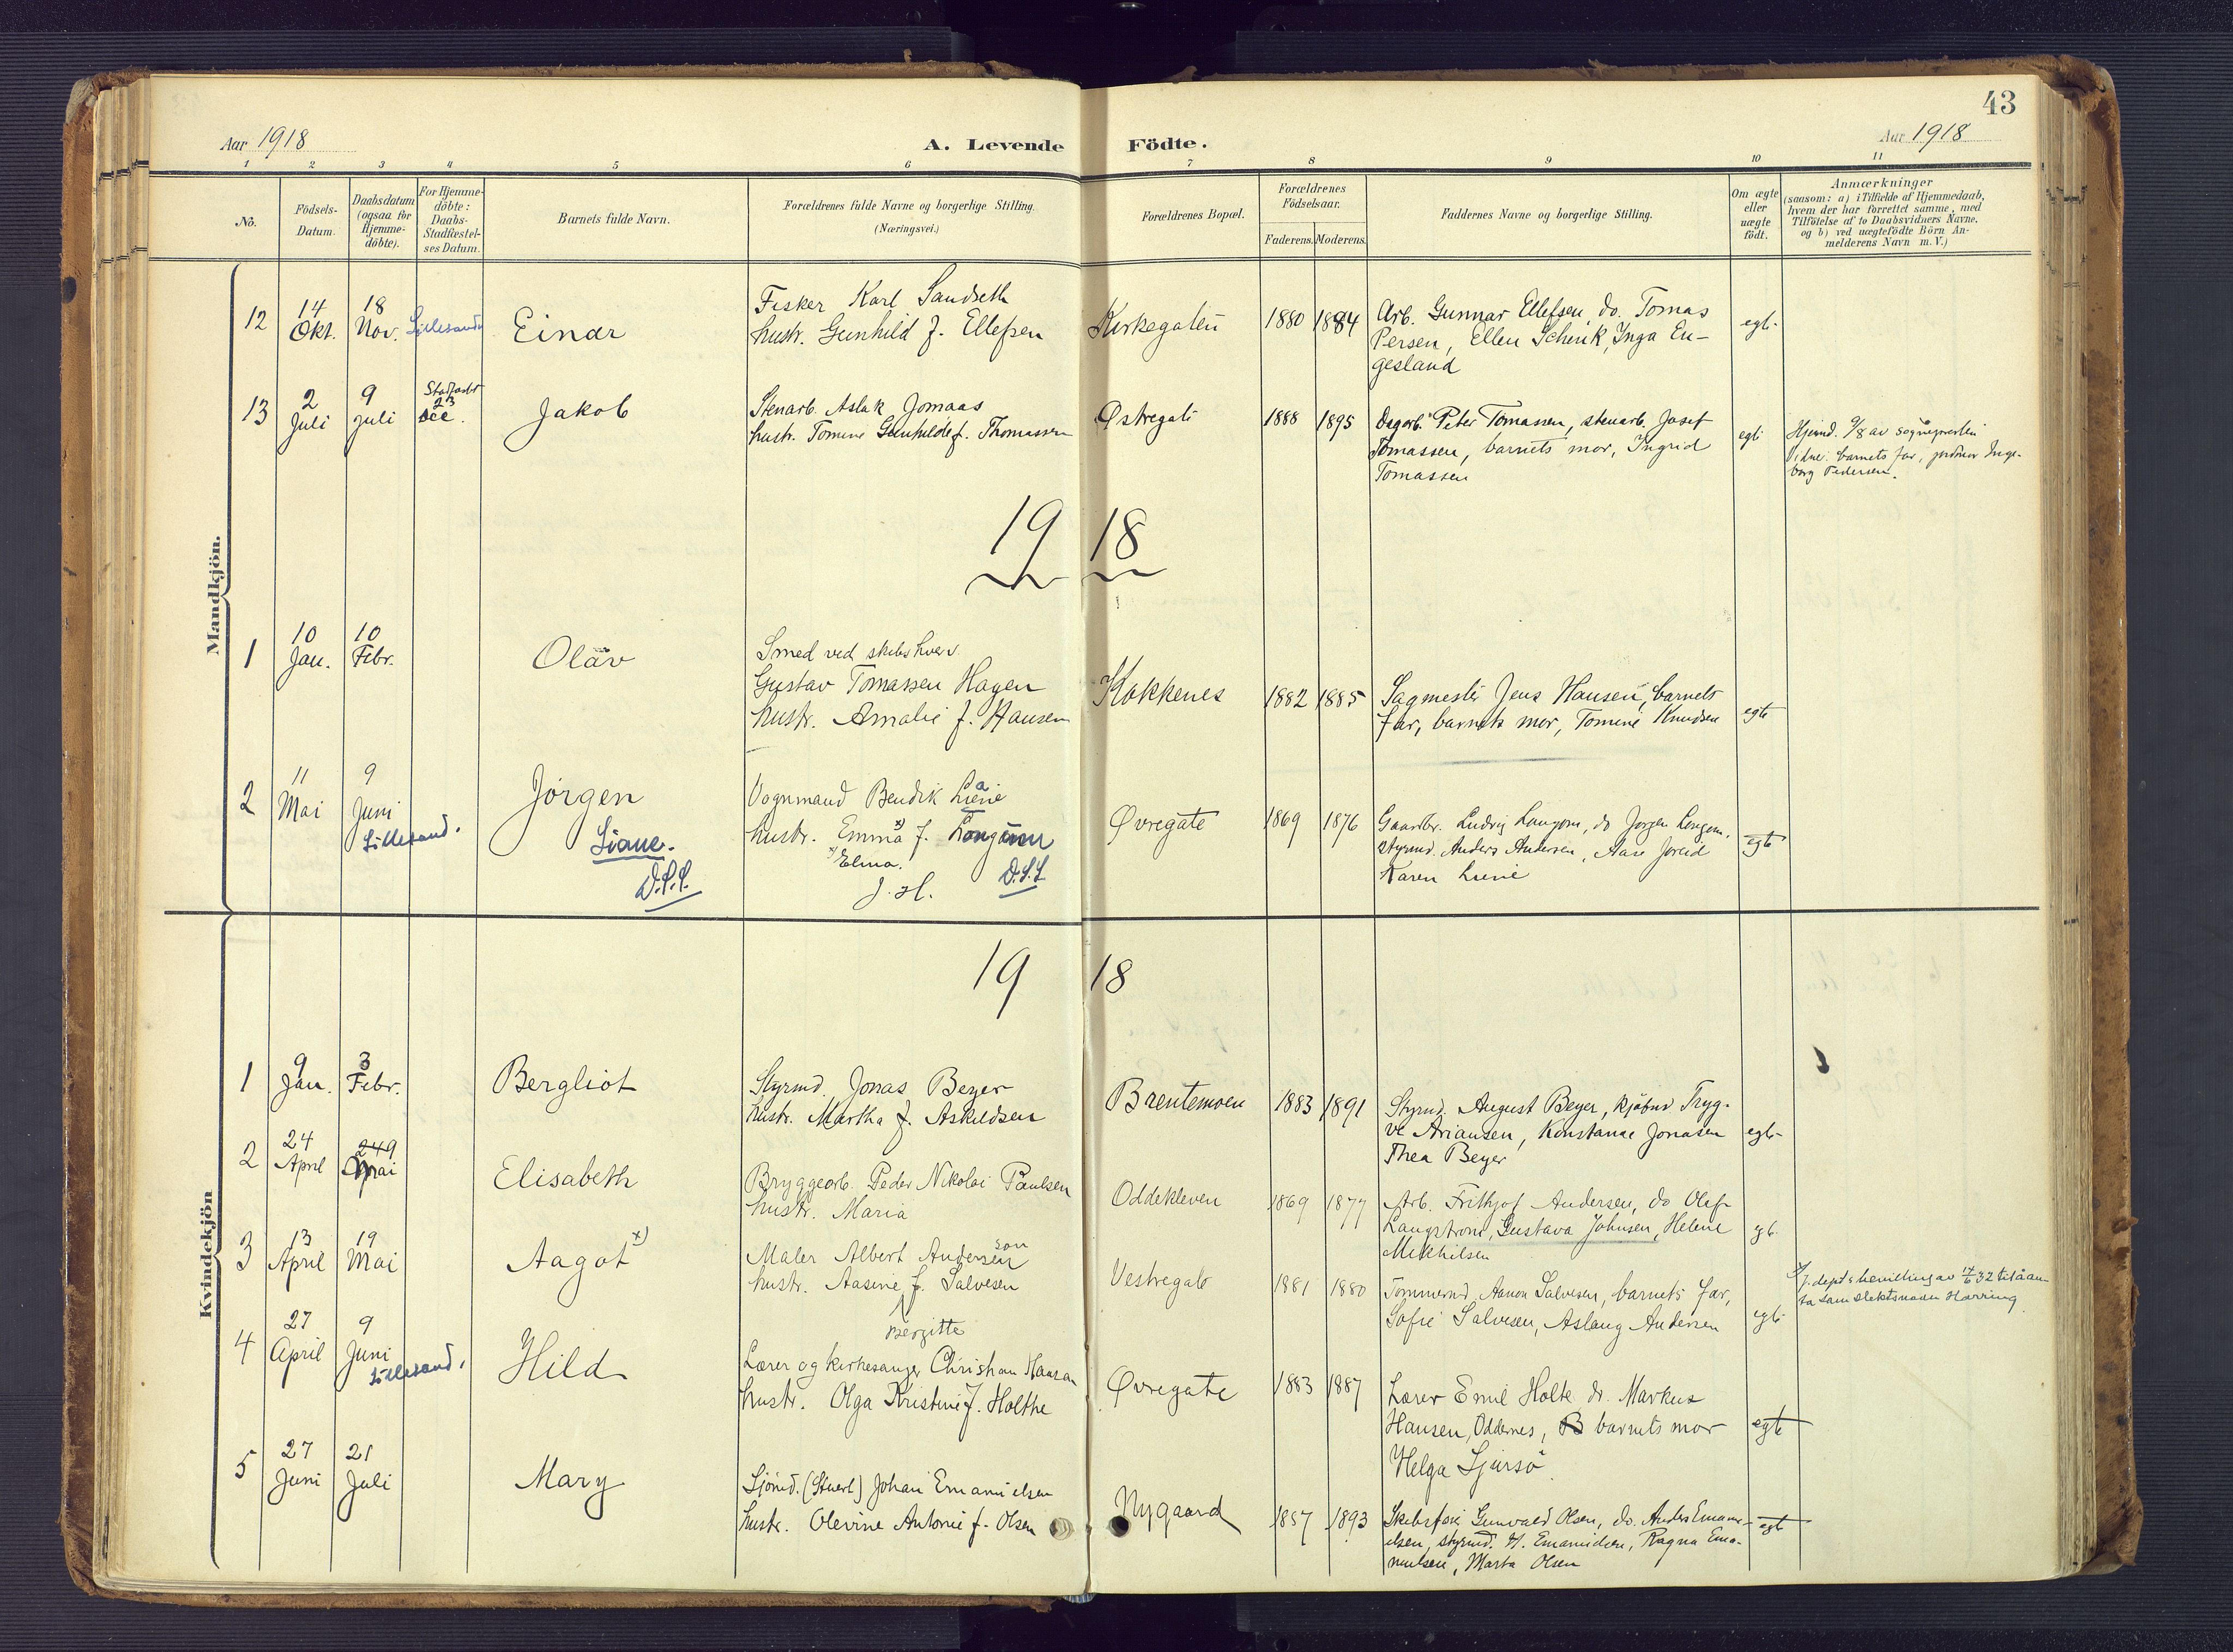 43
Aar 1918
A. Levende Födte.
Aar 1918
1 2 3 4 5 6 7 8 9 10 11
No.
Födsels-
Datum.
Daabsdatum
(ogsaa for
Hjemme-
döbte).
For Hjemme-
döbte:
Daabs-
Stadfæstel-
ses Datum.
Barnets fulde Navn.
Forældrenes fulde Navne og borgerlige Stilling.
(Næringsvei.)
Forældrenes Bopæl.
Forældrenes
Födselsaar.
Faderens. Moderens.
Faddernes Navne og borgerlige Stilling.
Om ægte
eller
uægte
födt.
Anmærkninger
(saasom: a) i Tilfælde af Hjemmedaab,
hvem der har forrettet samme, med
Tilföielse af to Daabsvidners Navne.
og b) ved uægtefödte Börn An-
melderens Navn m. V.)
Mandkjön.
12
14
Okt.
18
Nov.
Lillesand
Einar
Fisker Karl Sandseth
hustr. Gunhild f. Ellefsen
Kirkegaten
1880 1884
Arb. Gunnar Ellefsen, do. Tomas
Persen, Ellen Schenk, Inga En-
gesland
egt.
13
2
Juli
9
juli
Stadfæstet
23
dec.
Jakob
Stenarb. Aslak Jomaas
hustr. Tomine Gunhilde f. Thomassen
Østregate
1888 1895
Dagarb. Peter Tomassen, stenarb. Josef
Tomassen, barnets mor, Ingrid
Tomassen
egt
Hjemd. 9/8 av sognepresten
barnets far, jordmor Inge-
borg Pedersen.
19 18
1
10
Jan.
10
Febr.
Olav
Smed ved skibshverv
Gustav Tomassen Hagen
hustr. Amalie f. Hansen
Kokkenes
1882 1885
Sagmester Jens Hansen, barnets
far, barnets mor, Tomine Knudsen
egte
2
11
Mai
9
Juni
Lillesand.
Jörgen
Liane.
D.S.S.
Vognmand Bendik Liene
a
hustr. Emma x) f. Longum
x) Elina.
J. H.
D.S.S.
Øvregate
1869 1876
Gaardbr. Ludvig Longum, do Jørgen Longum,
styrmd. Anders Andersen, Aase
Karen Liene
egt
19 18
Kvindekjön
1
9
Jan.
3
Febr.
Bergliot
Styrmd. Jonas Beyer
hustr. Martha f. Askildsen
Brentemoen
1883 1891
Styrmd. August Beyer, kjöbmd Tryg-
ve Ariansen, Konstanse Jonasen
Thea Beyer
egt-
2
24
April
9
Mai
Elisabeth
Bryggearb. Peder Nikolai Paulsen
hustr. Maria
Oddekleven
1869 1877
Arb. Frithjof Andersen, do Olaf
Langstrom, Gustava Johnsen, Helene
Mikkilsen
gt.
3
13
April
19
Mai
Aagot x)
Maler Albert Andersen
son
hustr. Aasine f. Salvesen
Bergitte
Vestregate
1881 1880
Tømmermd Aanon Salvesen, barnets far,
Sofie Salvesen, Aslaug Andersen
egt.
x) J. dept.s bevilling av 14/6 32 til å an-
ta som slektsnavn Harring
4
27
April
9
Juni
Lillesand.
Hild
Lærer og kirkesanger Christian Haaran
hustr. Olga Kristine f. Holthe
Øvregate
1883 1887
Lærer Emil Holte do. Markus
Hansen, Oddernes, barnets mor
Helga Sjursö
egt
5
27
Juni
21
Juli
Mary
Sjömd. (Stuert) Johan Emanuelsen
hustr. Olevine Antonie f. Olsen
Nygaard
1857 1893
Skibsfører Gunvald Olsen, do. Anders Emanu-
elsen, styrmd. H. Emanuelsen, Ragna Ema-
nuelsen, Marta Olsen
egt